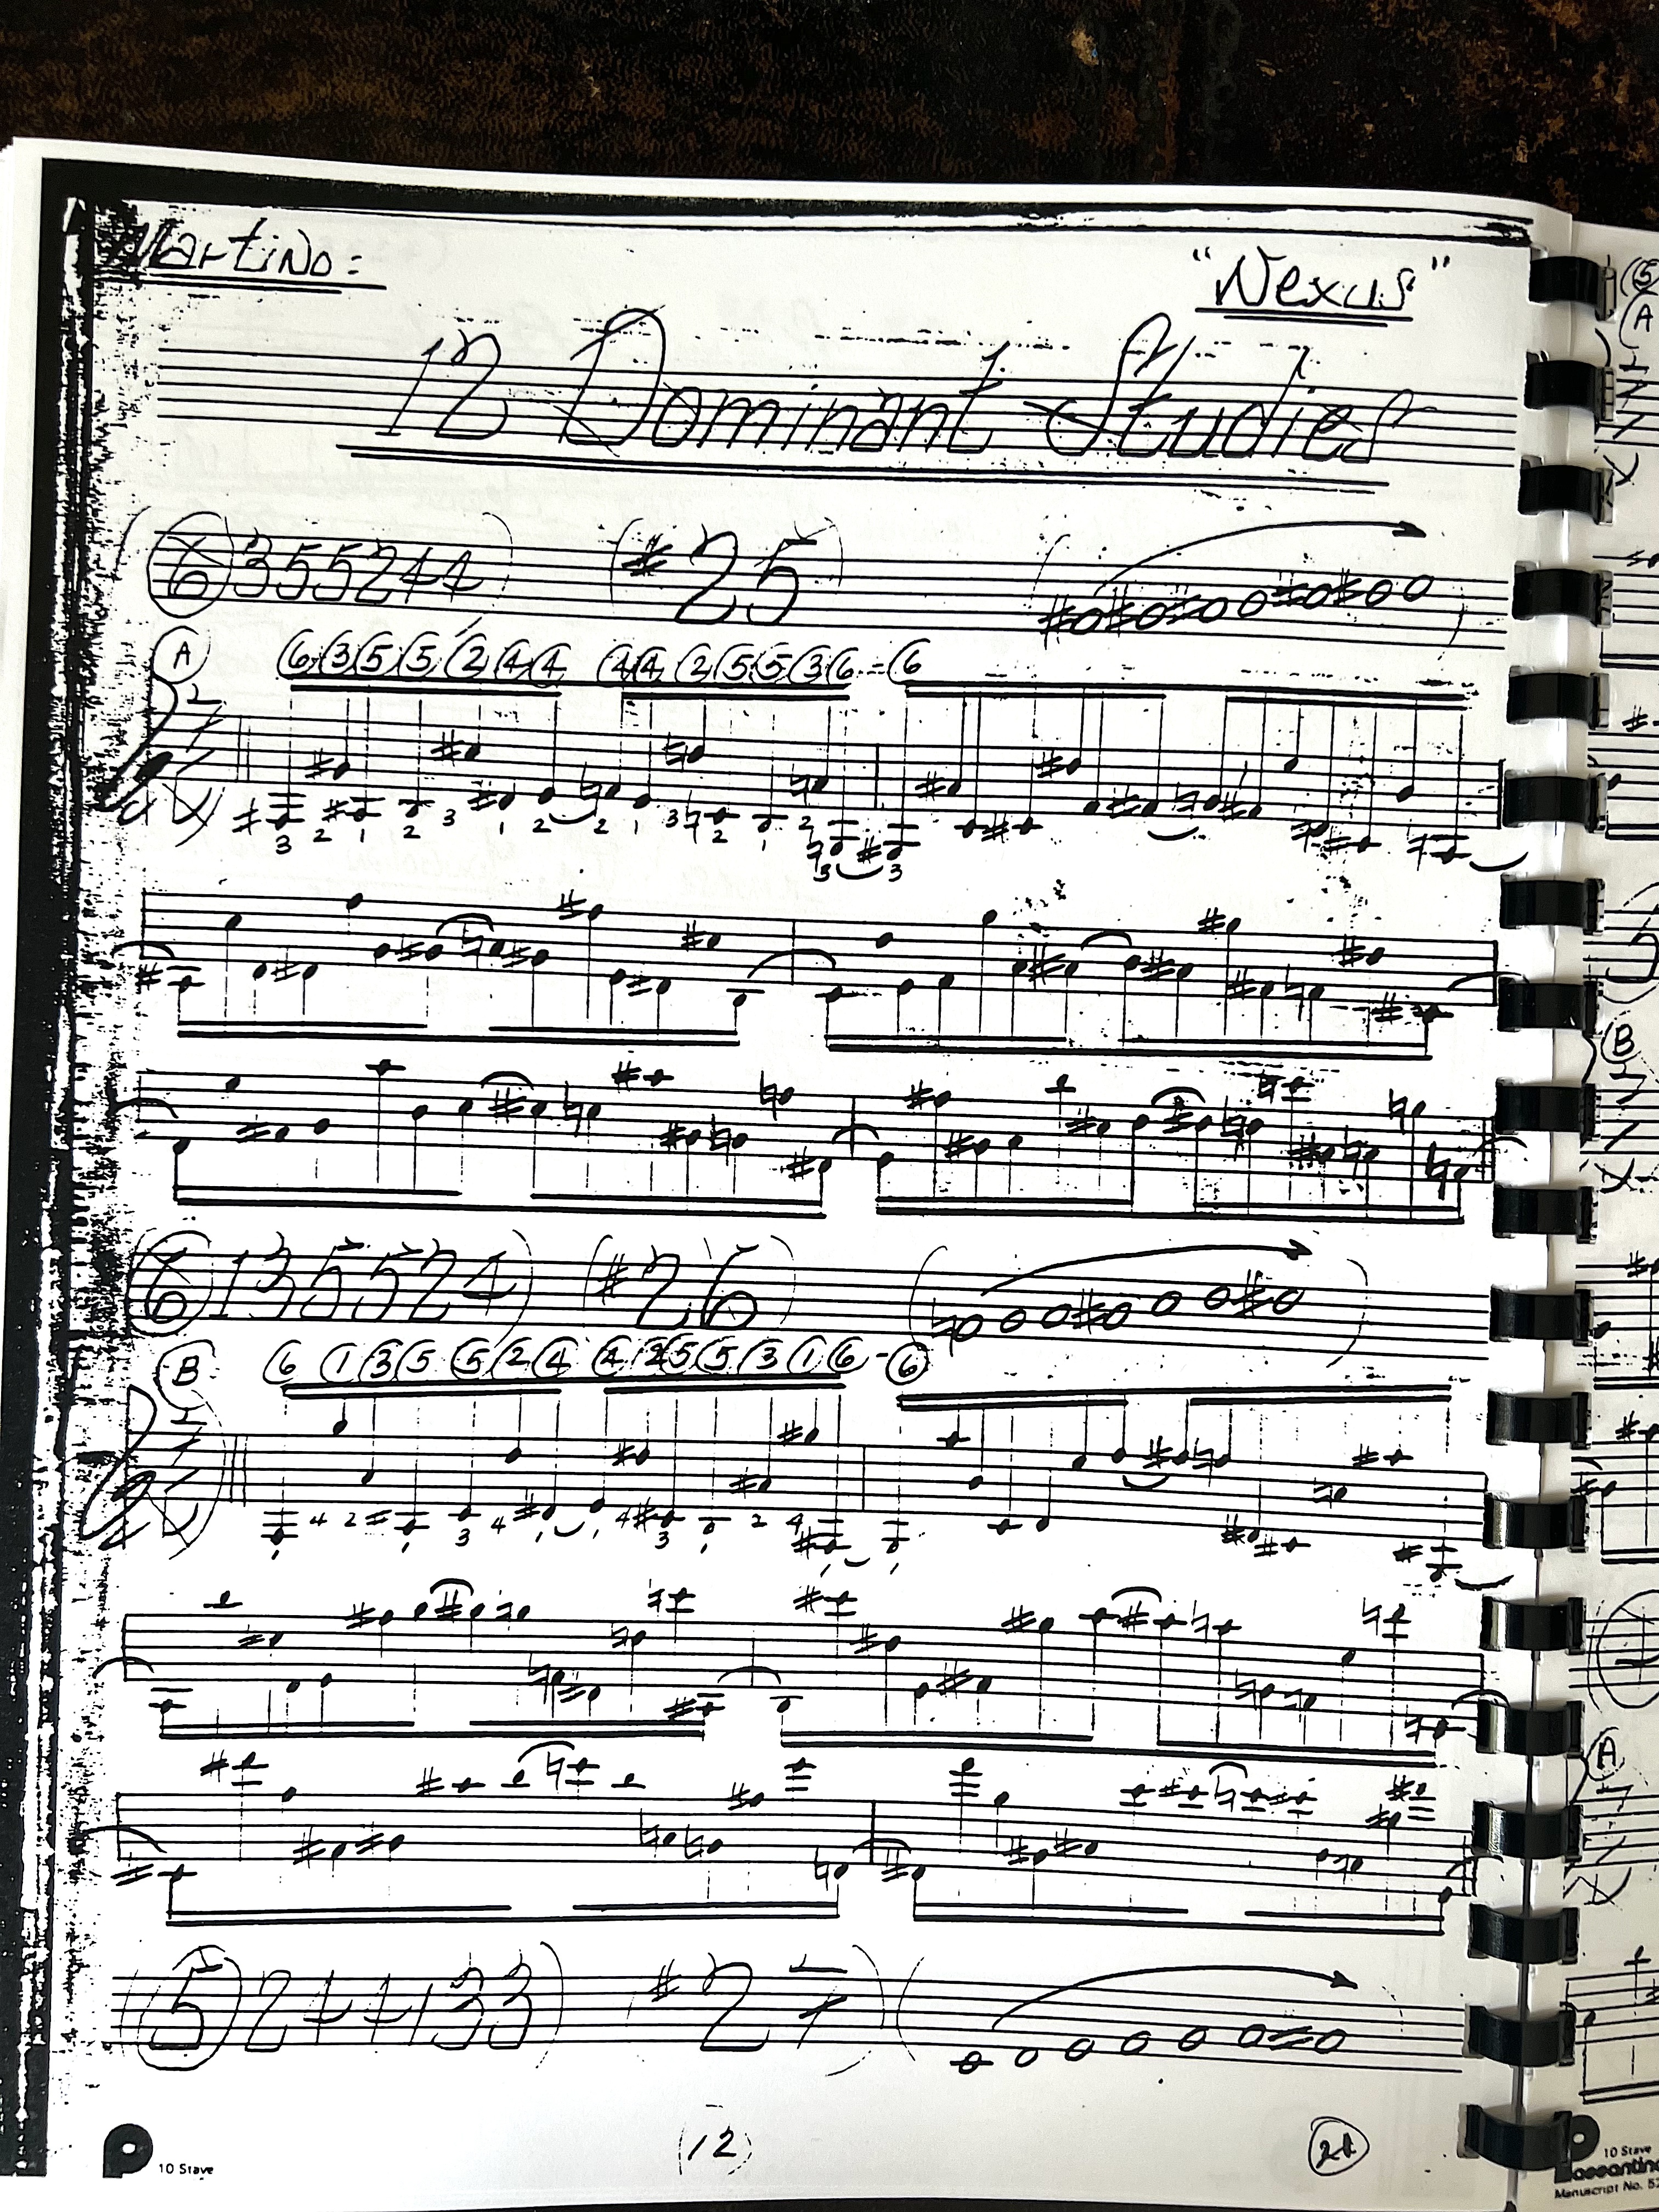 Martino: "Nexus"
12 Dominant Studies
(6 3 5 5 2 4 4) (#25)
A 6 3 5 5 2 4 4 4 4 2 5 5 3 6 - 6
3 2 1 2 3 1 2 2 1 3 2 1 2 3 3
(6 1 3 5 5 2 4) (#26)
B 6 1 3 5 5 2 4 4 2 5 5 3 1 6 - 6
1 4 2 1 3 4 1 1 4 3 1 2 4 1 1
(5 2 4 4 1 3 3) (#27)
10 Stave
(12)
A
B
A
10 Stave
Passantino
Manuscript No.